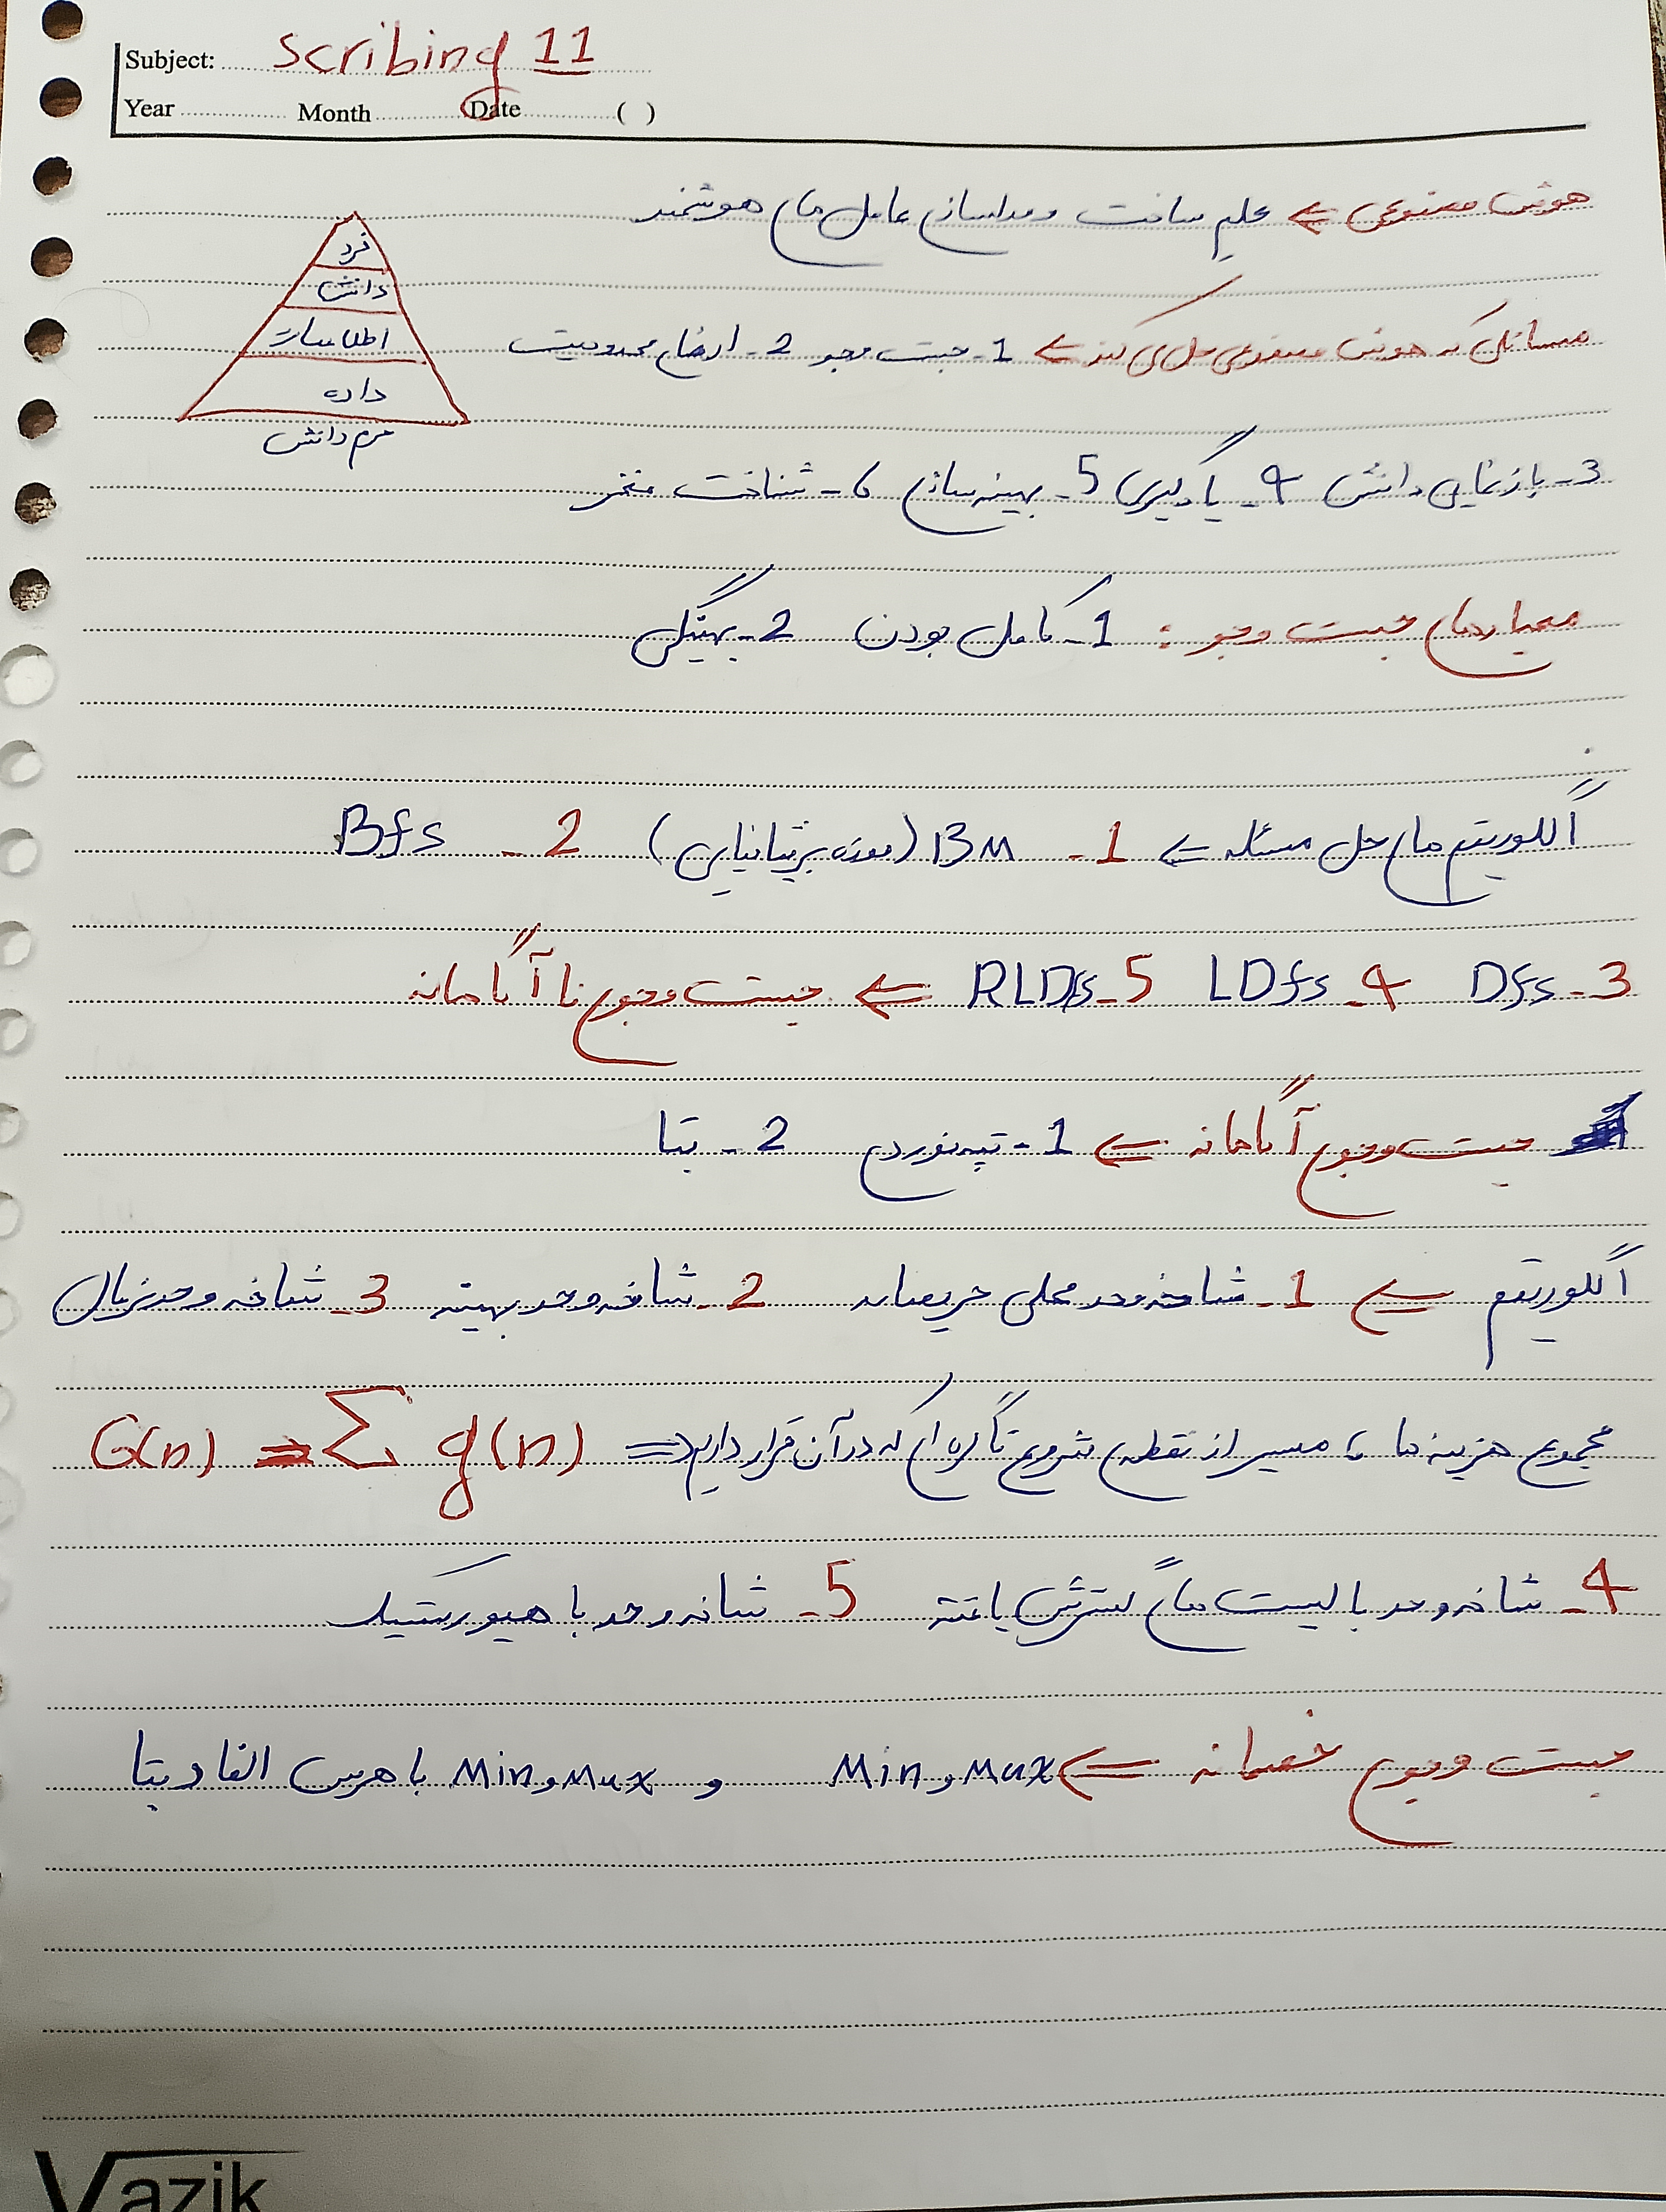 Subject: Scribing 11
Year Month Date ( )
هوش مصنوعی ← علم ساخت و مدلسازی عامل های هوشمند
خرد
دانش
اطلاعات
داده
هرم دانش
مسائلی که هوش مصنوعی حل می کند ← 1- جست وجو 2- ارضای محدودیت
3- بازنمایی دانش 4- یادگیری 5- بهینه سازی 6- شناخت مغز
معیارهای جست وجو : 1- کامل بودن 2- بهینگی
الگوریتم های حل مسئله ⇐ 1- BM (موزه بریتانیایی) 2- Bfs
3- Dfs 4- LDfs 5- RLDfs ⇐ جست وجوی نا آگاهانه
جست وجوی آگاهانه ⇐ 1- تپه نوردی 2- بتا
الگوریتم ⇐ 1- شاخه وحد محلی حریصانه 2- شاخه وحد بهینه 3- شاخه وحد نرمال
مجموع هزینه ها و مسیر از نقطه ی شروع تا گره ای که در آن قرار داریم ⇐ G(n) = ∑ g(n)
4- شاخه وحد با لیست های گسترش یافته 5- شاخه وحد با هیوریستیک
جست وجوی خصمانه ⇐ Min و Max و Min و Max با هرس الفا و بتا
Vazik